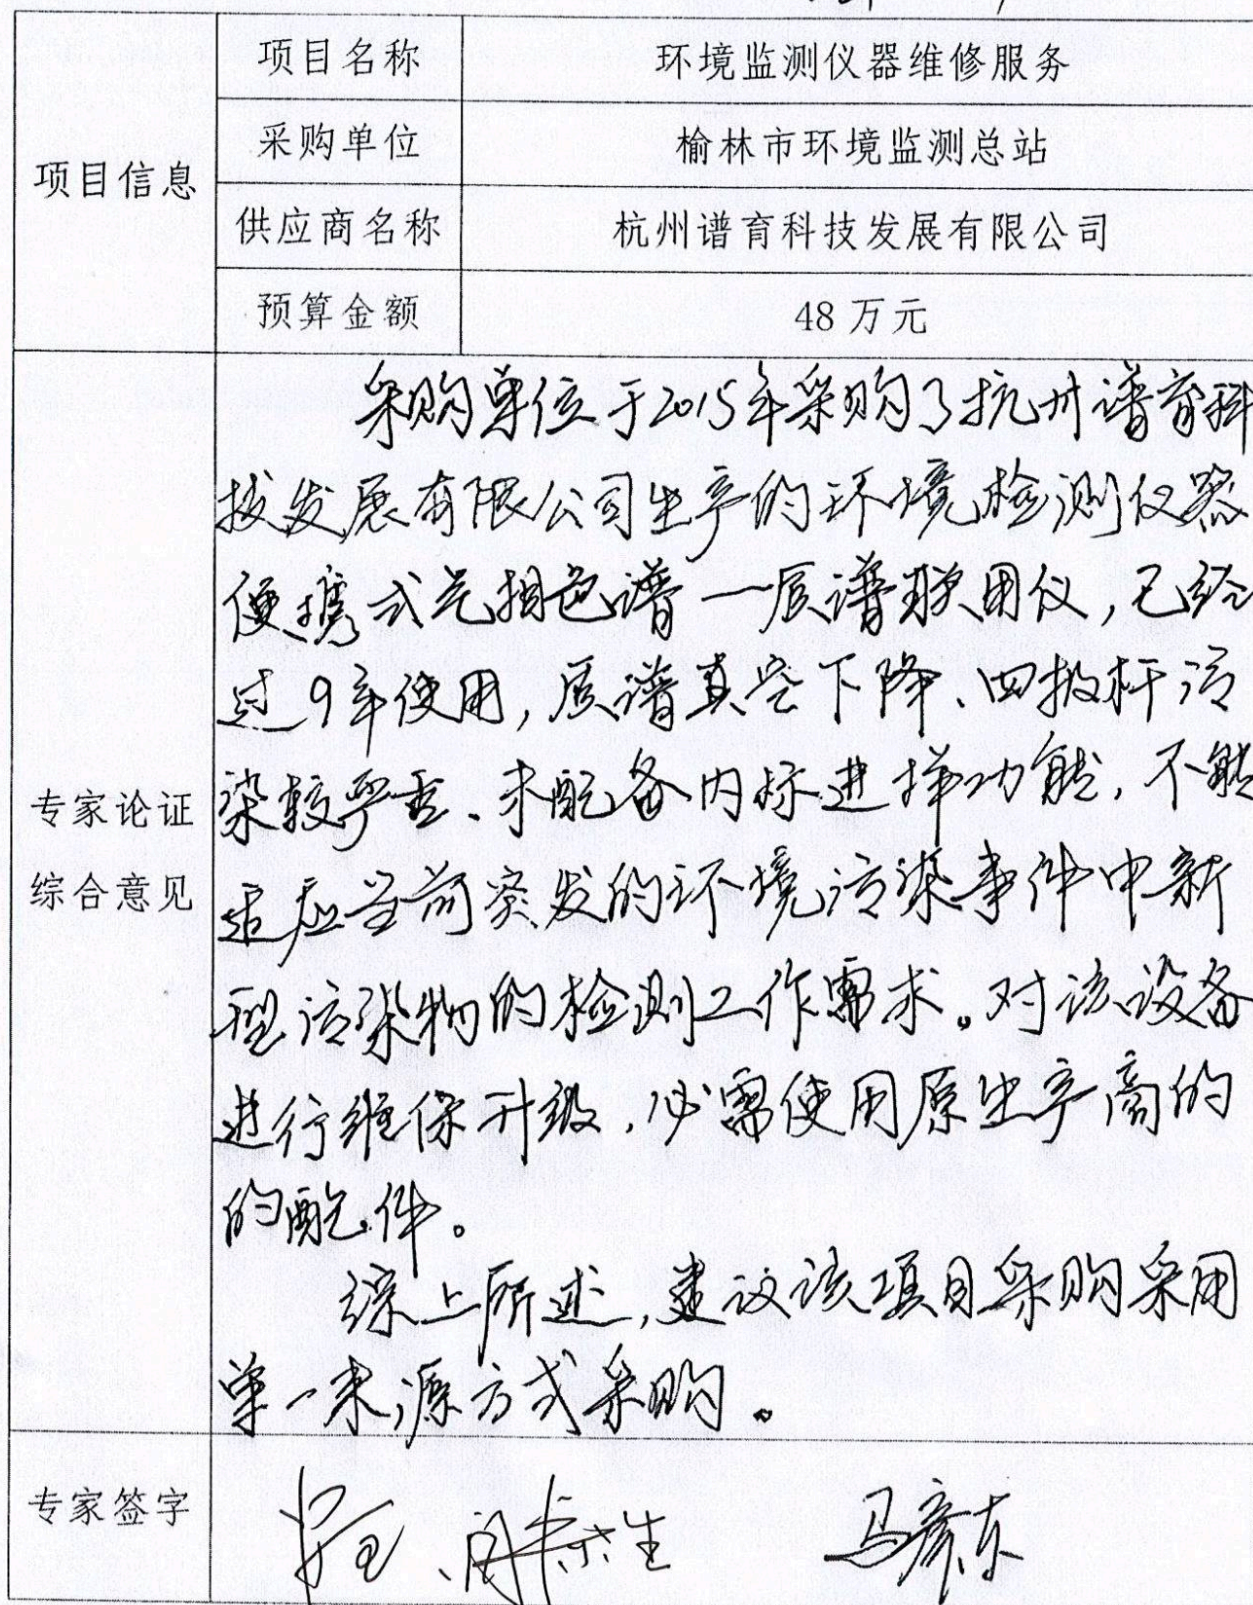 项目信息
项目名称 环境监测仪器维修服务
采购单位 榆林市环境监测总站
供应商名称 杭州谱育科技发展有限公司
预算金额 48万元
专家论证
综合意见
采购单位于2015年采购了杭州谱育科
技发展有限公司生产的环境检测仪器
便携式气相色谱一质谱联用仪,已经
过9年使用,质谱真空下降、四极杆污
染较严重、未配备内标进样功能,不能
适应当前突发的环境污染事件中新
型污染物的检测工作需求。对该设备
进行维保升级,必需使用原生产商的
的配件。
综上所述,建议该项目采购采用
单一来源方式采购。
专家签字
马彦东